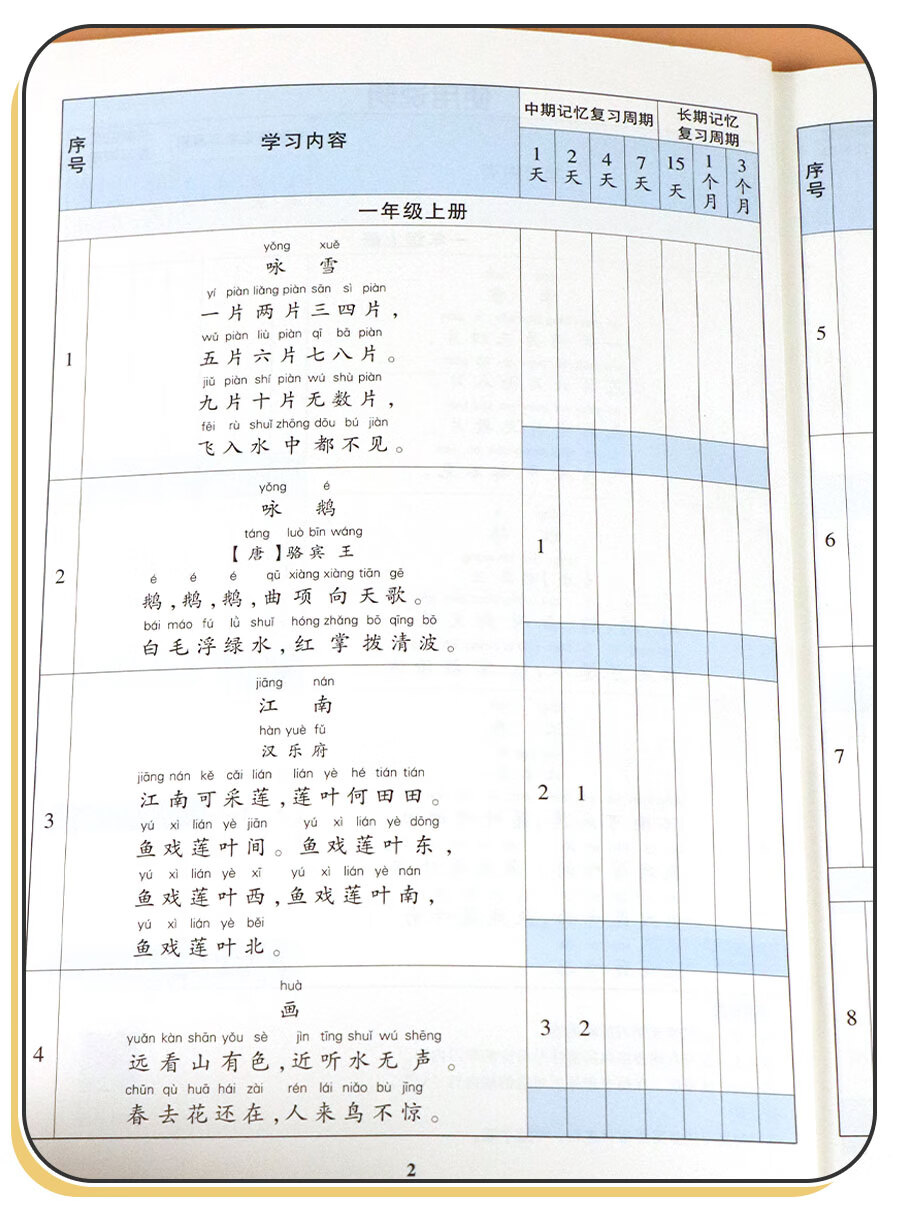 序号 学习内容 中期记忆复习周期 长期记忆复习周期
1天 2天 4天 7天 15天 1个月 3个月
一年级上册
1
yǒng xuě
咏 雪
yí piàn liǎng piàn sān sì piàn
一片两片三四片，
wǔ piàn liù piàn qī bā piàn
五片六片七八片。
jiǔ piàn shí piàn wú shù piàn
九片十片无数片，
fēi rù shuǐ zhōng dōu bú jiàn
飞入水中都不见。
2
yǒng é
咏 鹅
táng luò bīn wáng
【唐】骆宾王
1
é é é qū xiàng xiàng tiān gē
鹅，鹅，鹅，曲项向天歌。
bái máo fú lǜ shuǐ hóng zhǎng bō qīng bō
白毛浮绿水，红掌拨清波。
3
jiāng nán
江 南
hàn yuè fǔ
汉乐府
jiāng nán kě cǎi lián lián yè hé tián tián
江南可采莲，莲叶何田田。
2 1
yú xì lián yè jiān yú xì lián yè dōng
鱼戏莲叶间。鱼戏莲叶东，
yú xì lián yè xī yú xì lián yè nán
鱼戏莲叶西，鱼戏莲叶南，
yú xì lián yè běi
鱼戏莲叶北。
4
huà
画
3 2
yuǎn kàn shān yǒu sè jìn tīng shuǐ wú shēng
远看山有色，近听水无声。
chūn qù huā hái zài rén lái niǎo bù jīng
春去花还在，人来鸟不惊。
2
序号
5
6
7
8